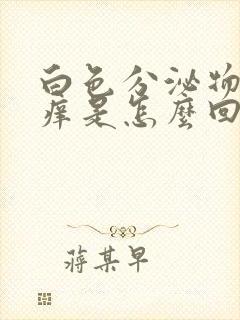 白色分泌物
痒是怎麼回
蔣某早